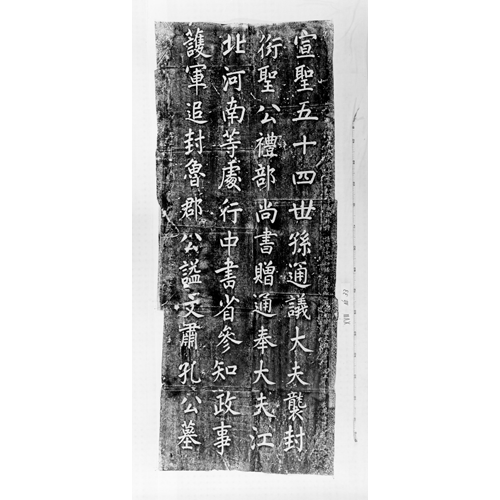 宣聖五十四世孫通議大夫襲封
衍聖公禮部尚書贈通奉大夫江
北河南等處行中書省參知政事
護軍追封魯郡公謚文肅孔公墓